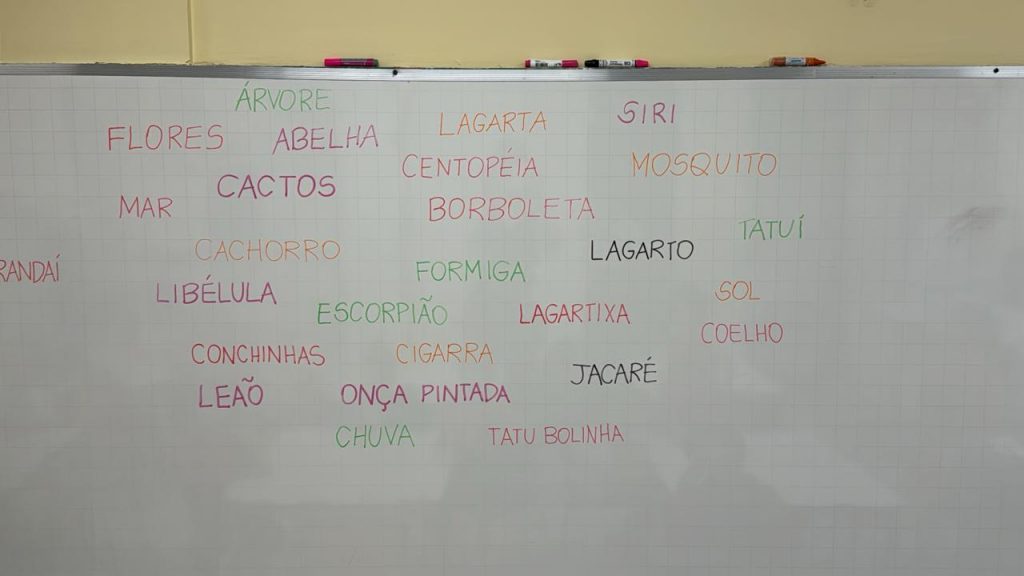 ÁRVORE
FLORES ABELHA LAGARTA SIRI
CENTOPÉIA MOSQUITO
CACTOS
MAR BORBOLETA
TATUÍ
CACHORRO LAGARTO
RANDAÍ FORMIGA
LIBÉLULA SOL
ESCORPIÃO LAGARTIXA
COELHO
CONCHINHAS CIGARRA
JACARÉ
LEAÕ ONÇA PINTADA
CHUVA TATU BOLINHA